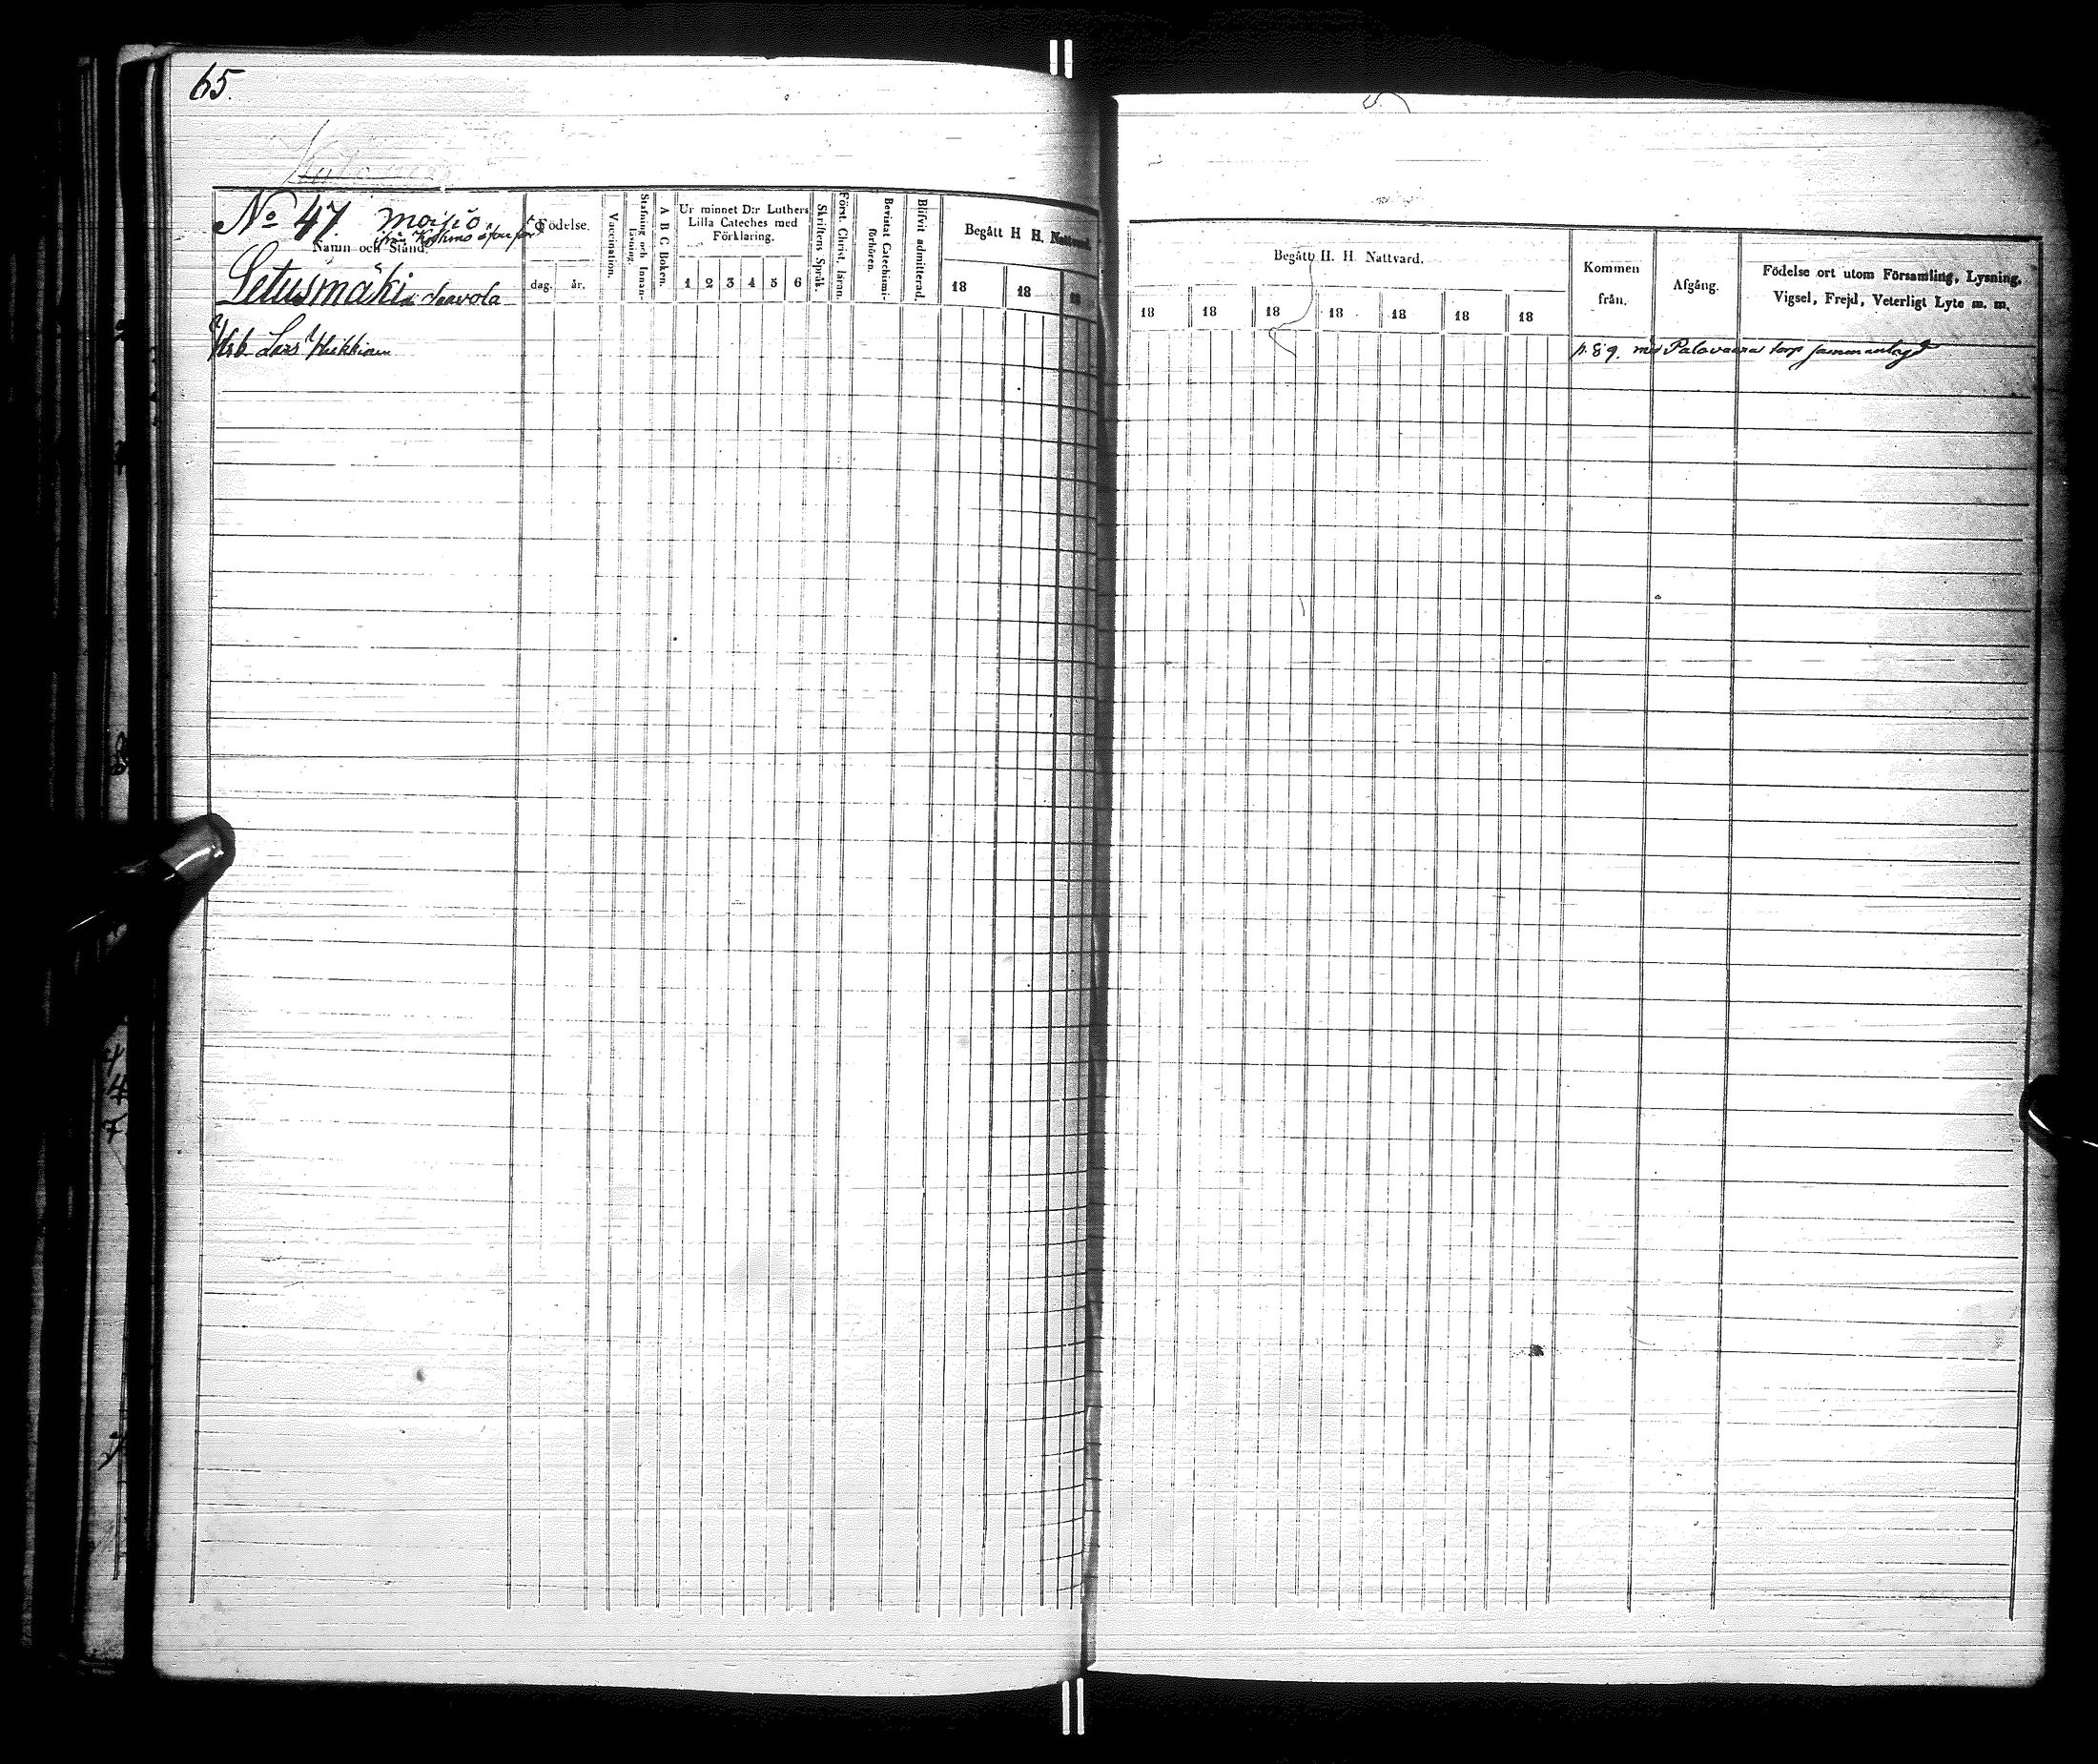 65.
No 47. moisio
från
Namn och Stånd.
Letusmäki Saavola
Hsb Lars Heikkinen
Födelse.
dag. år.
Vaccination.
Stafning och Innan-
läsning.
A B C Boken.
Ur minnet D:r Luthers
Lilla Cateches med
Förklaring.
1 2 3 4 5 6
Skriftens Språk.
Först. Christ. läran.
Bevistat Catechismi-
förhören.
Blifvit admitterad.
Begått H H. Nattvard.
18 18 18
Begått H. H. Nattvard.
18 18 18 18 18 18 18
Kommen
från.
Afgång.
Födelse ort utom Församling, Lysning,
Vigsel, Frejd, Veterligt Lyte m. m.
p. 89. med Palovaara torp sammanlagd